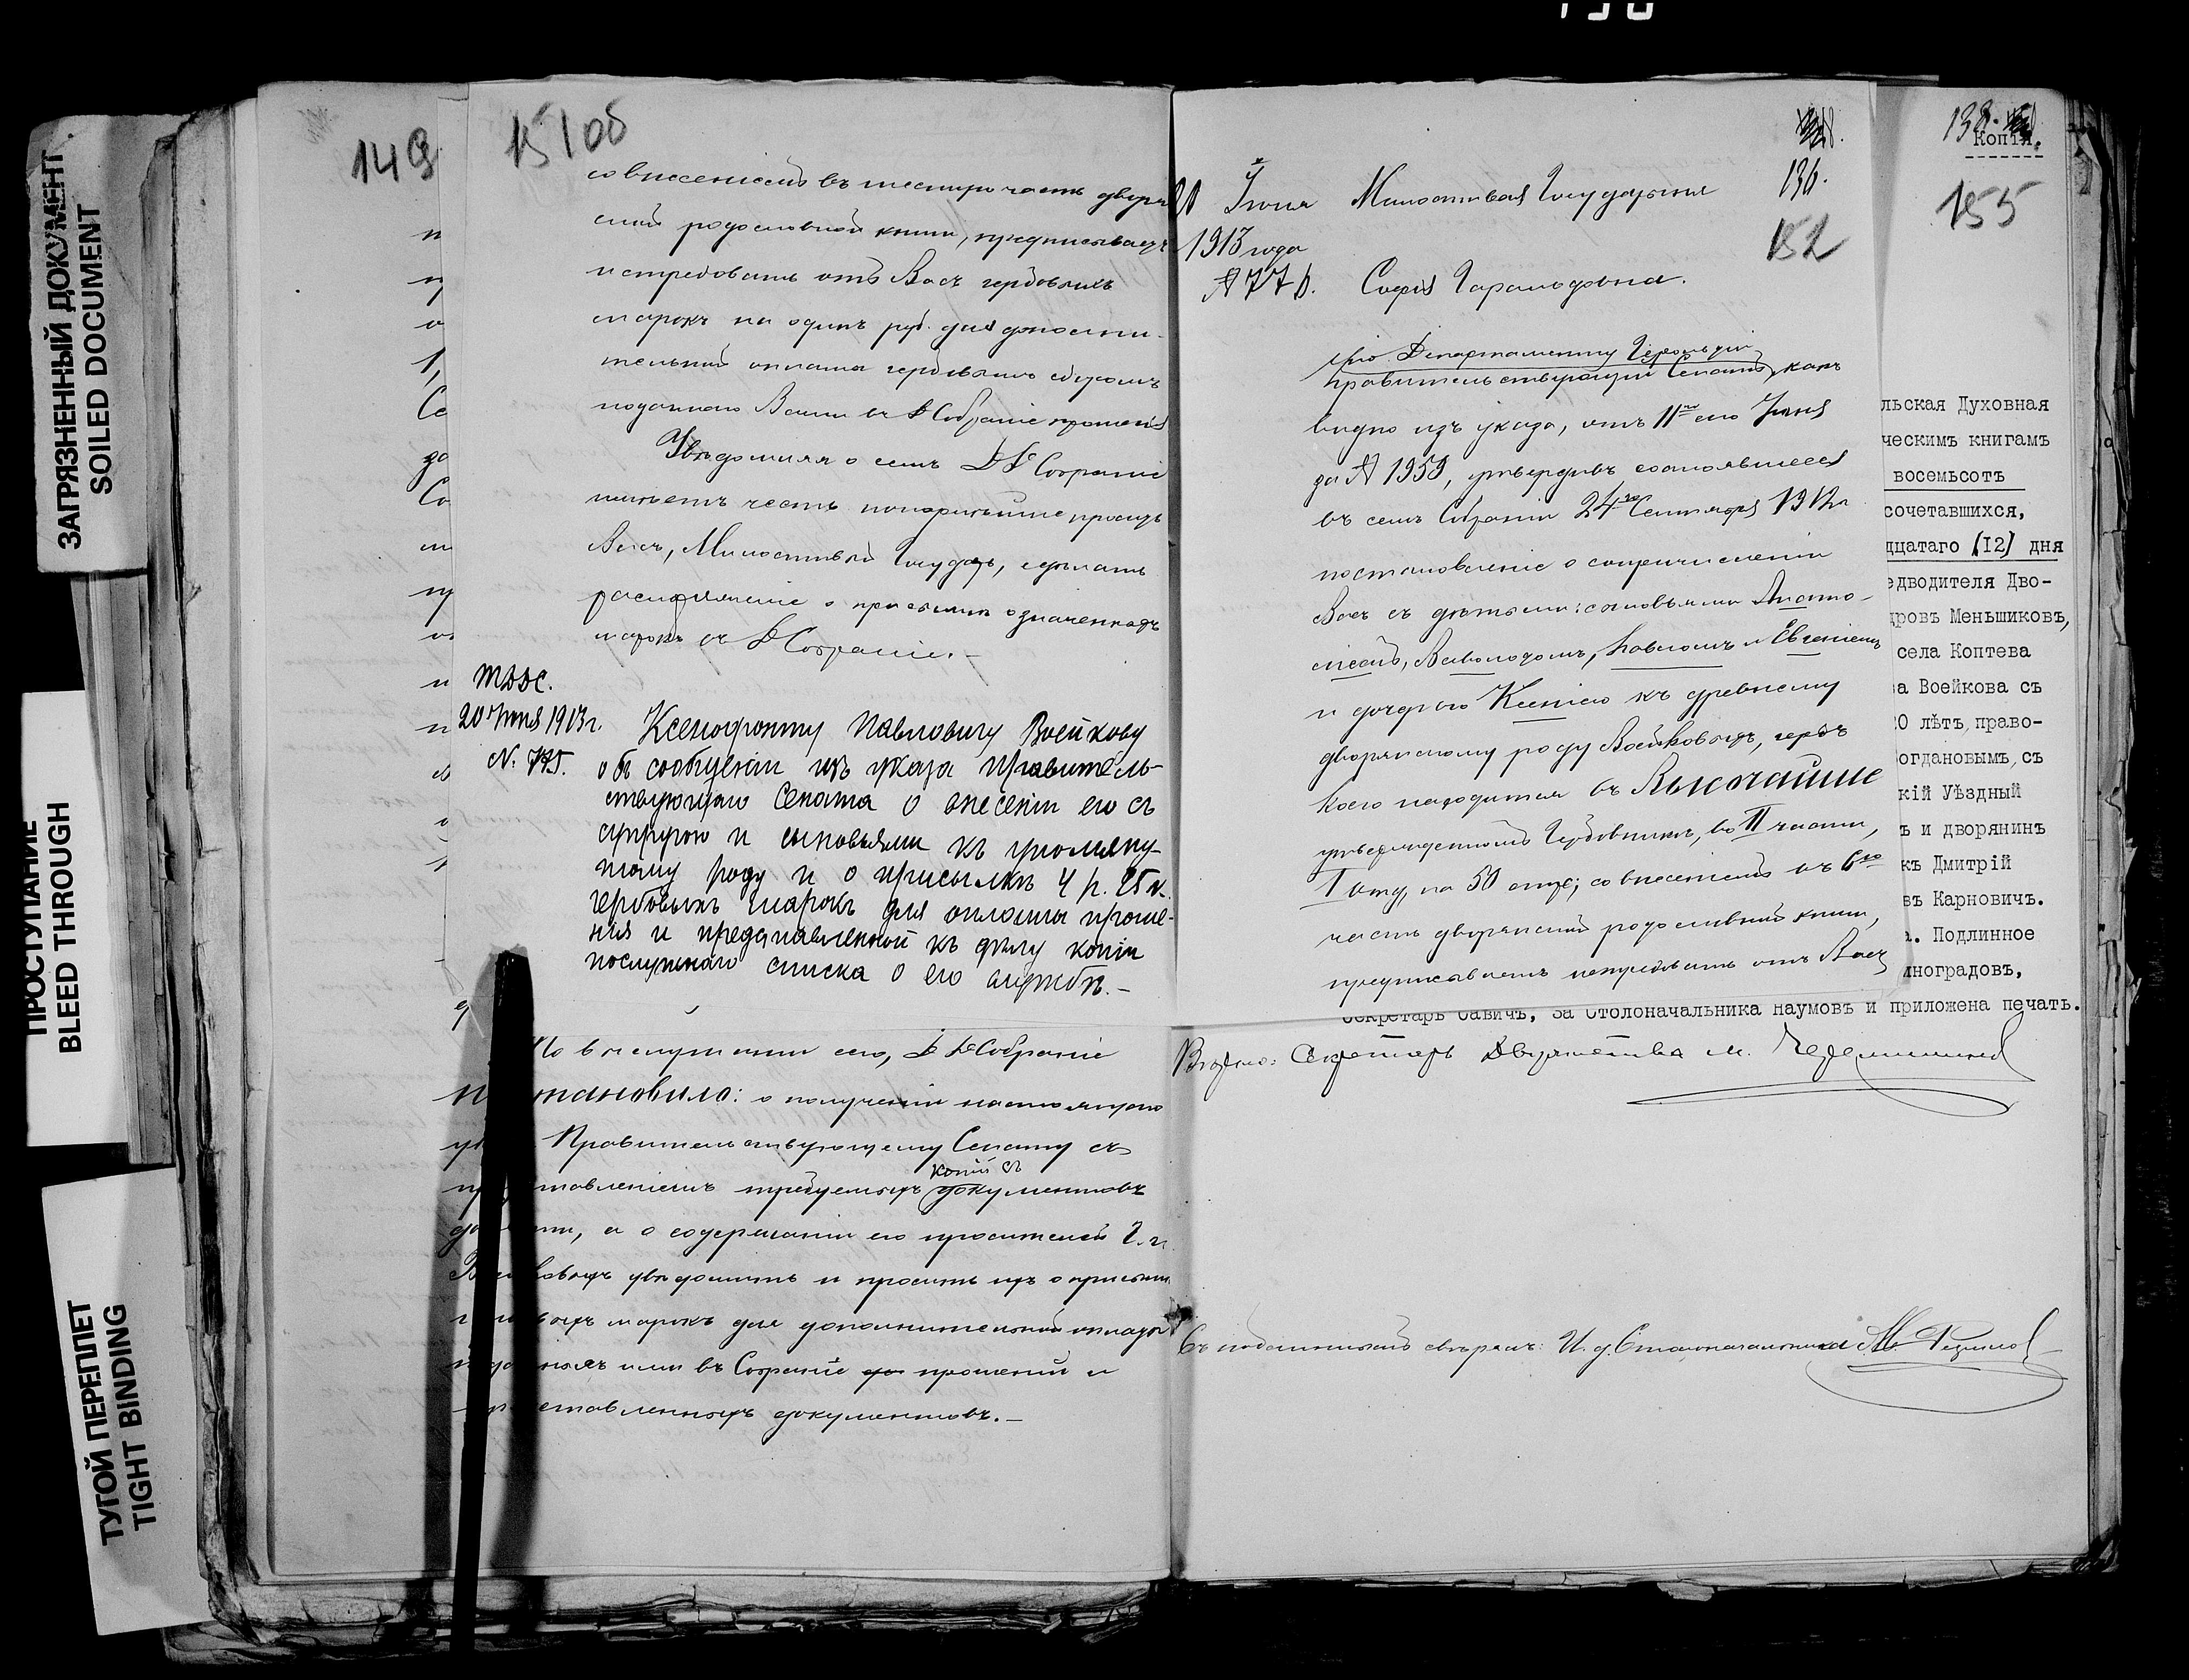 ЗАГРЯЗНЕННЫЙ ДОКУМЕНТ
SOILED DOCUMENT
ПРОСТУПАНИЕ
BLEED THROUGH
ТУГОЙ ПЕРЕПЛЕТ
TIGHT BINDING
149
151об
со внесеніемъ въ шестую часть дворян
ской родословной книги, предписываетъ
истребовать отъ Васъ гербовыхъ
марокъ на одинъ руб. для дополни-
тельной оплаты гербовымъ сборомъ
поданнаго Вами въ Собраніе прошенія
Увѣдомляя о семъ Д. Д. Собраніе
имѣетъ честь покорнѣйше просить
Васъ, Милостивый Государь, сдѣлать
распоряженіе о присылкѣ означенныхъ
марокъ въ Д. Собраніе.-
Т.Д.Д.С.
20 Іюня 1913 г.
N. 775.
Ксенофонту Павловичу Воейкову
объ сообщеніи изъ указа Правитель-
ствующаго Сената о внесеніи его съ
супругою и сыновьями къ упомяну-
тому роду и о присылкѣ 4 р. 25 к.
гербовыхъ марокъ для оплаты проше-
нія и представленной къ дѣлу копіи
послужнаго списка о его службѣ.-
По выслушаніи сего, Д. Д. Собраніе
тановило: о полученіи настоящаго
Правительствующему Сенату съ
копій съ
тавленіемъ требуемыхъ документовъ
а о содержаніи его просителей Г.г.
увѣдомить и просить ихъ о присылкѣ
марокъ для дополнительной оплаты
ими въ Собраніе прошеній и
ставленныхъ документовъ.-
20 Іюня
1913 года
№ 776.
136.
152
Милостивая Государыня
Софія Гарольдовна.
по Департаменту Герольдіи
Правительствующій Сенатъ, какъ
видно изъ указа, отъ 11го сего Іюня
за № 1959, утвердивъ состоявшееся
въ семъ Собраніи 24го Сентября 1912 г
постановленіе о сопричисленіи
Васъ съ дѣтьми: сыновьями Анато-
ліемъ, Всеволодомъ, Павломъ и Евгеніемъ
и дочерью Ксеніею къ древнему
дворянскому роду Воейковыхъ, гербъ
коего находится въ Высочайше
утвержденномъ Гербовникѣ, во II части,
I отд, на 50 стр; со внесеніемъ въ 6ю
часть дворянской родословной книги,
предписываетъ истребовать отъ Васъ
138.
Копія.
155
льская Духовная
ческимъ книгамъ
восемьсотъ
сочетавшихся,
дцатаго (I2) дня
едводителя Дво-
дровъ Меньшиковъ,
села Коптева
ва Воейкова съ
20 лѣтъ, право-
огдановымъ, съ
кій Уѣздный
ъ и дворянинъ
къ Дмитрій
въ Карновичъ.
а. Подлинное
иноградовъ,
Секретарь Савичъ, За Столоначальника Наумовъ и приложена печать.
Вѣрно: Секретарь Дворянства
Съ подлиннымъ свѣрялъ: И. д. Столоначальника